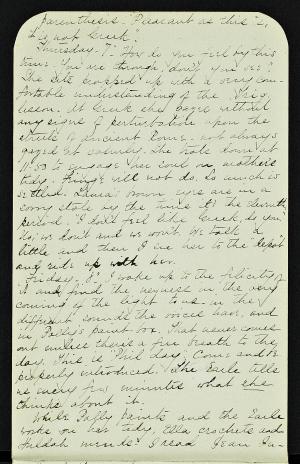 parenthesis. "Pleasant as this is,
it is not Greek".
Thursday. 7. How do you feel by this
time. You are through, don't you see?
The Dite stopped up with a very com-
fortable understanding of the
lesson. At Greek she gazed without
any signs of perturbation upon the
streets of ancient Rome. not always
gazed at calmly. She sat down at
11.30 to engage her soul on another
tidy. Things will not do. So much is
settled. Laura's brown eyes are in a
sorry state by the time it's the seventh
period. "I don't feel like Greek, do you"
No; we don't and we won't. We talk a
little and then I see her to the depot
and ride up with her.
Friday. 8. I wake up to the felicity of
it and find the newness in the very
coming of the light to us. in the
different sounds the voices have, and
in Polly's paint box. That never comes
out unless there's a fine breath to the
day. This is Phil day. Come and be
properly introduced. The Earle tells
us every few minutes what she
thinks about it.
While Polly paints and the Earle
works on her tidy, Ella crochets and
Huldah mends. I read Jean In-